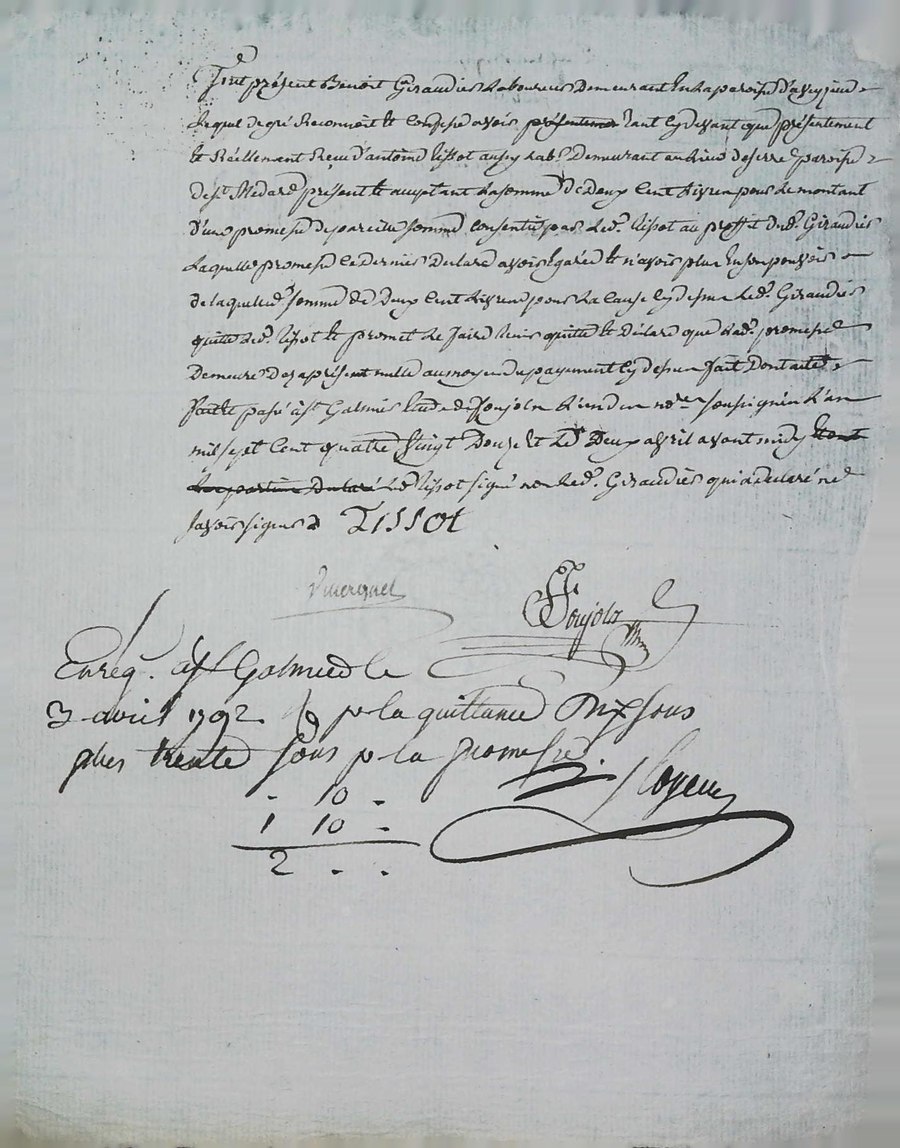 Fut présent Benoit Giraudier Laboureur Demeurant En la paroisse d'aveyzieu
Lequel de gré Reconnoit et Confesse avoir présentement tant cy devant que présentement
et Réellement Reçu d'antoine tissot aussy lab.r Demeurant au Lieu de serre paroisse
de st. Medard présent et acceptant La somme de Deux Cent Livres pour Le montant
D'une promesse de pareille somme consentie par Led. tissot au proffit dud. Giraudier
Laquelle promesse Ce Dernier Declare avoir Egaré et n'avoir plus En son pouvoir
de laquelle d. somme de Deux Cent Livres pour La Cause cy dessus Led. Giraudier
quitte Led. tissot et promet Le faire tenir quitte et Déclare que Lad. promesse
Demeure Dez aprésent nulle au moyen du payement cy dessus fait Dont acte
fait et passé à st. Galmier Etude de foujols L'un des nores soussignés L'an
mil sept Cent quatre vingt Douze et Le Deux avril avant midy
Led. tissot signé non Led. Giraudier qui a declaré ne
savoir signer TISSOt
foujols
Enreg. a st Galmier le
3 avril 1792 pr la quittance Dix sous
plus trente sous pr la promesse
- 10 -
1 10 -
2 . .